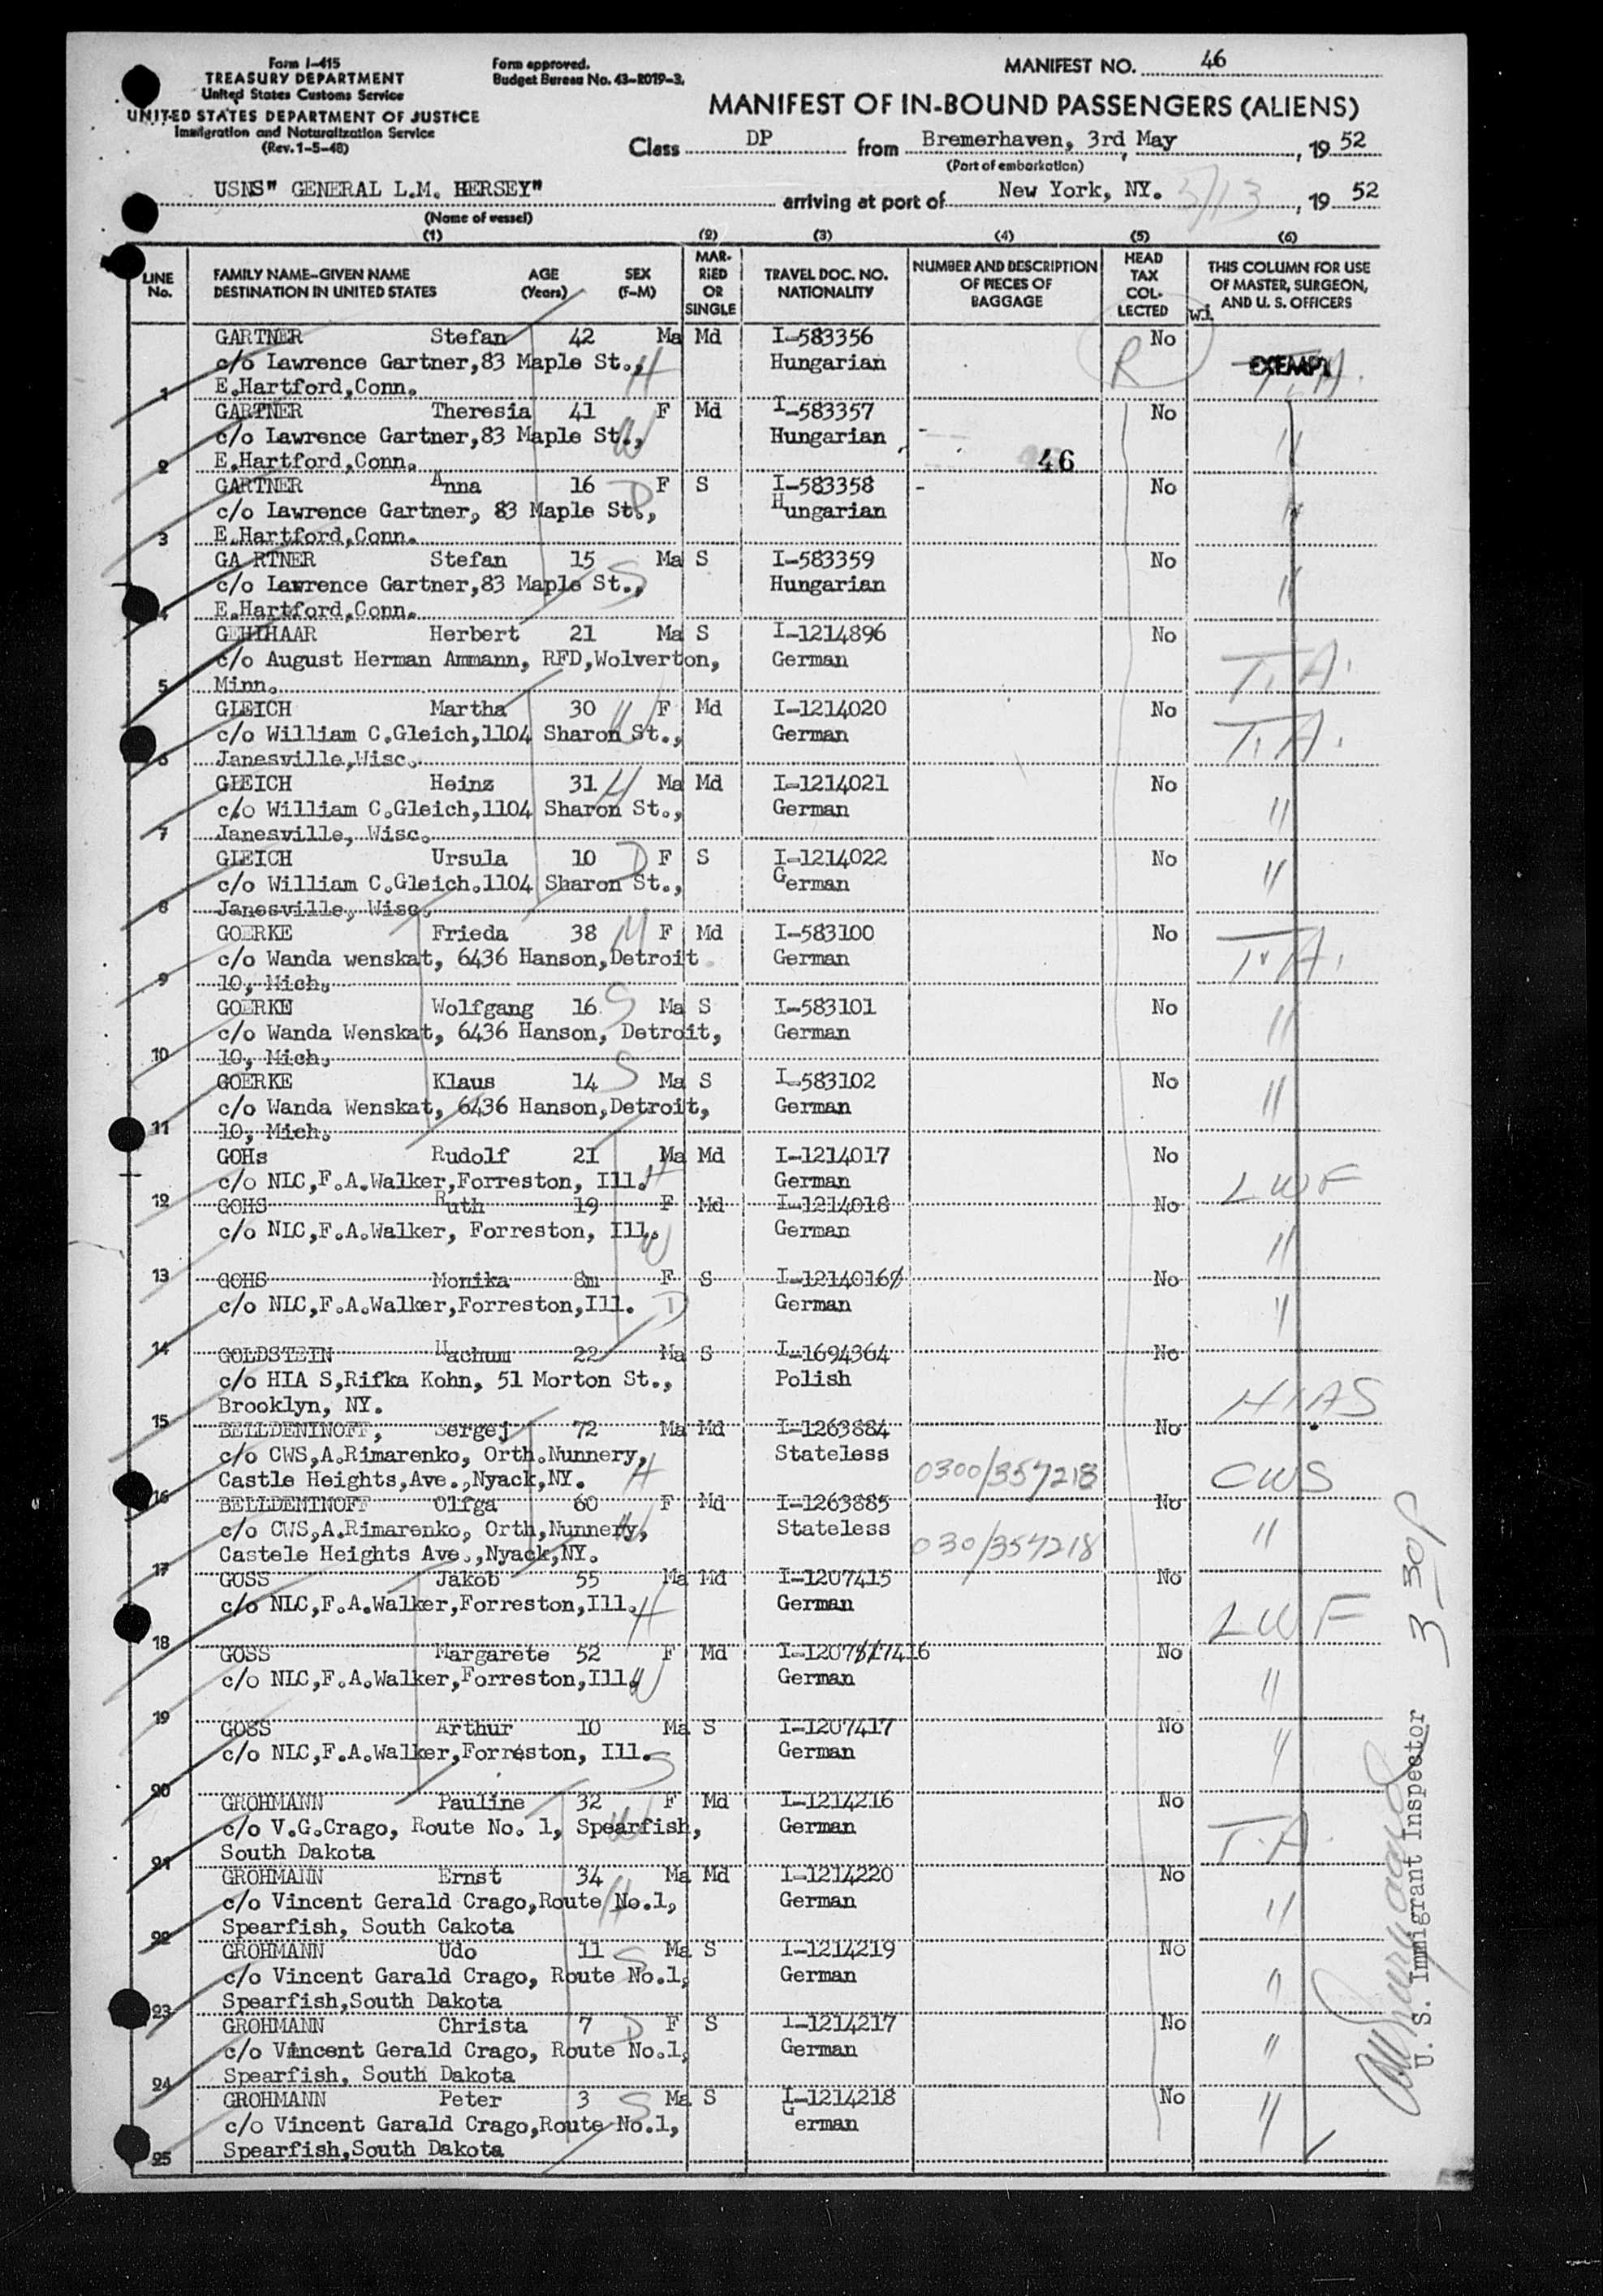 Form I-415
TREASURY DEPARTMENT
United States Customs Service
UNITED STATES DEPARTMENT OF JUSTICE
Immigration and Naturalization Service
(Rev. 1-5-48)
Form approved.
Budget Bureau No. 43-R019-3.
MANIFEST NO. 46
MANIFEST OF IN-BOUND PASSENGERS (ALIENS)
Class DP from Bremerhaven, 3rd May, 1952
(Port of embarkation)
USNS" GENERAL L.M. HERSEY" arriving at port of New York, NY. 5/13, 1952
(Name of vessel)
(1) (2) (3) (4) (5) (6)
LINE No. FAMILY NAME-GIVEN NAME DESTINATION IN UNITED STATES AGE (Years) SEX (F-M) MARRIED OR SINGLE TRAVEL DOC. NO. NATIONALITY NUMBER AND DESCRIPTION OF PIECES OF BAGGAGE HEAD TAX COLLECTED THIS COLUMN FOR USE OF MASTER, SURGEON, AND U. S. OFFICERS
wi
GARTNER Stefan 42 Ma Md I-583356 No
c/o Lawrence Gartner,83 Maple St., H Hungarian R EXEMPT T.A.
1 E.Hartford,Conn.
GARTNER Theresia 41 F Md I-583357 No
c/o Lawrence Gartner,83 Maple St., W Hungarian "
2 E.Hartford,Conn. 46
GARTNER Anna 16 D F S I-583358 - No
c/o Lawrence Gartner, 83 Maple St., Hungarian "
3 E.Hartford,Conn.
GA RTNER Stefan 15 Ma S I-583359 No
c/o Lawrence Gartner,83 Maple St., S Hungarian "
4 E.Hartford,Conn.
GEHLHAAR Herbert 21 Ma S I-1214896 No
c/o August Herman Ammann, RFD,Wolverton, German T.A.
5 Minn.
GLEICH Martha 30 W F Md I-1214020 No
c/o William C.Gleich,1104 Sharon St., German T.A.
6 Janesville,Wisc.
GLEICH Heinz 31 H Ma Md I-1214021 No
c/o William C.Gleich,1104 Sharon St., German "
7 Janesville, Wisc.
GLEICH Ursula 10 D F S I-1214022 No
c/o William C.Gleich.1104 Sharon St., German "
8 Janesville, Wisc.
GOERKE Frieda 38 M F Md I-583100 No
c/o Wanda wenskat, 6436 Hanson,Detroit German T.A.
9 10, Mich.
GOERKE Wolfgang 16 S Ma S I-583101 No
c/o Wanda Wenskat, 6436 Hanson, Detroit, German "
10 10, Mich.
GOERKE Klaus 14 S Ma S I-583102 No
c/o Wanda Wenskat, 6436 Hanson,Detroit, German "
11 10, Mich.
GOHs Rudolf 21 Ma Md I-1214017 No
c/o NLC,F.A.Walker,Forreston, Ill. H German LWF
12 GOHS Ruth 19 F Md I-1214018 No
c/o NLC,F.A.Walker, Forreston, Ill. W German "
13 GOHS Monika 8m F S I-1214016 No
c/o NLC,F.A.Walker,Forreston,Ill. D German "
14 GOLDSTEIN Nachum 22 Ma S I-1694364 No
c/o HIA S,Rifka Kohn, 51 Morton St., Polish
Brooklyn, NY. HIAS
15 BELLDENINOFF, Sergej 72 Ma Md I-1263884 No
c/o CWS,A.Rimarenko, Orth.Nunnery, Stateless
Castle Heights,Ave.,Nyack,NY. H 0300/357218 CWS
16 BELLDENINOFF Olfga 60 F Md I-1263885 No
c/o CWS,A.Rimarenko, Orth,Nunnery, W Stateless "
Castele Heights Ave.,Nyack,NY. 030/357218
17 GOSS Jakob 55 Ma Md I-1207415 No
c/o NLC,F.A.Walker,Forreston,Ill. H German LWF
18 GOSS Margarete 52 F Md I-1207517416 No
c/o NLC,F.A.Walker,Forreston,Ill. W German "
19 GOSS Arthur 10 Ma S I-1207417 No
c/o NLC,F.A.Walker,Forreston, Ill. S German "
20 GROHMANN Pauline 32 F Md I-1214216 No
c/o V.G.Crago, Route No. 1, Spearfish, W German T.A.
21 South Dakota
GROHMANN Ernst 34 Ma Md I-1214220 No
c/o Vincent Gerald Crago,Route No.1, H German "
22 Spearfish, South Cakota
GROHMANN Udo 11 S Ma S I-1214219 No
c/o Vincent Garald Crago, Route No.1, German "
23 Spearfish,South Dakota
GROHMANN Christa 7 D F S I-1214217 No
c/o Vincent Gerald Crago, Route No.1, German "
24 Spearfish, South Dakota
GROHMANN Peter 3 S Ma S I-1214218 No
c/o Vincent Garald Crago,Route No.1, German "
25 Spearfish,South Dakota
3 30P
U. S. Immigrant Inspector